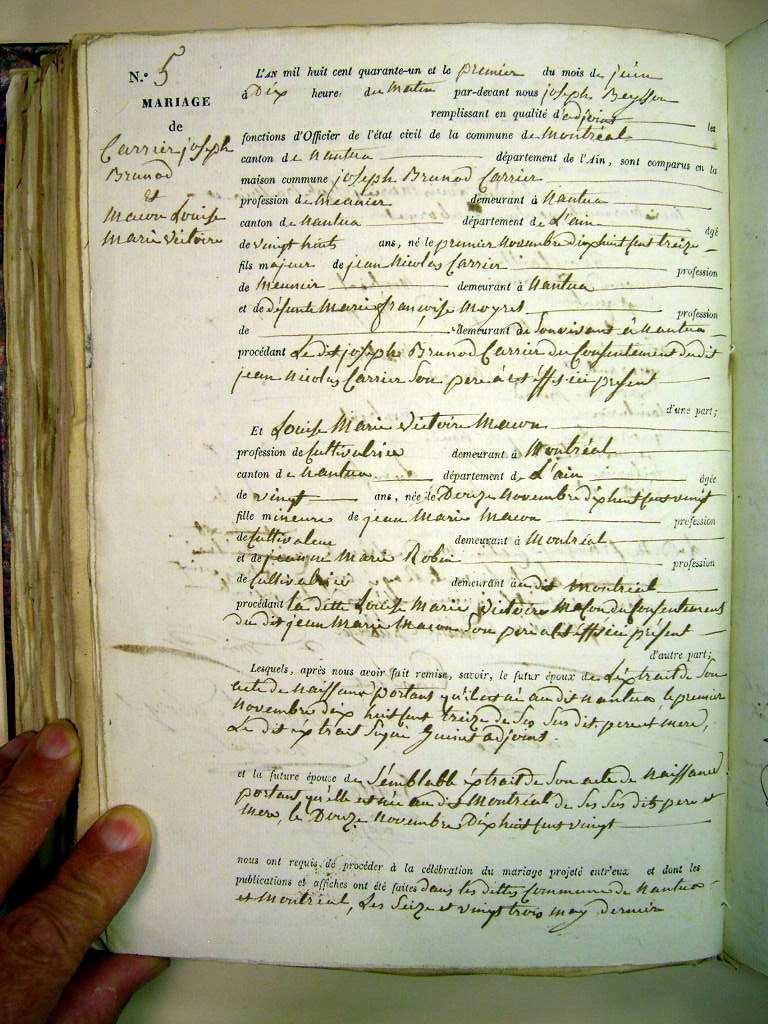 N.º 5
MARIAGE
de
Carrier joseph
Brunod
et
Macon Louise
Marie Victoire
L'AN mil huit cent quarante-un et le premier du mois de juin
à Dix heure du Matin par-devant nous joseph Beysson
remplissant en qualité d'adjoint les
fonctions d'Officier de l'état civil de la commune de Montréal
canton de Nantua département de l'Ain, sont comparus en la
maison commune joseph Brunod Carrier
profession de Meunier demeurant à Nantua
canton de Nantua département de L'ain âgé
de vingt huit ans, né le premier Novembre dix huit cent treize
fils majeur de jean Nicolas Carrier profession
de Meunier demeurant à Nantua
et de défunte Marie françoise Moyret profession
de demeurant de Son vivant à Nantua
procédant Le dit joseph Brunod Carrier du Consentement du dit
jean Nicolas Carrier Son pere à cet effet ici present
d'une part;
Et Louise Marie Victoire Macon
profession de Cultivatrice demeurant à Montréal
canton de Nantua département de L'ain âgée
de vingt ans, née le Douze Novembre dix huit cent vingt
fille mineure de jean Marie Macon profession
de Cultivateur demeurant à Montréal
et de jeanne Marie Robin profession
de Cultivatrice demeurant au dit Montréal
procédant la dette Louise Marie Victoire Macon du Consentement
du dit jean Marie Macon Son pere à cet effet ici présent
d'autre part;
Lesquels, après nous avoir fait remise, savoir, le futur époux de L'éxtrait de Son
acte de Naissance portant qu'il est né au dit Nantua, le premier
Novembre dix huit cent treize de Ses Sus dit pere et mere,
Le dit éxtrait Signé Guinet adjoint.
et la future épouse de Sémblable éxtrait de Son acte de Naissance
portant qu'elle est née au dit Montréal de Ses Sus dits pere et
mere, le Douze Novembre Dix huit cent vingt
nous ont requis de procéder à la célébration du mariage projeté entr'eux et dont les
publications et affiches ont été faites dans les dittes Commune de Nantua
et Montréal, Les Seize et vingt trois may dernier